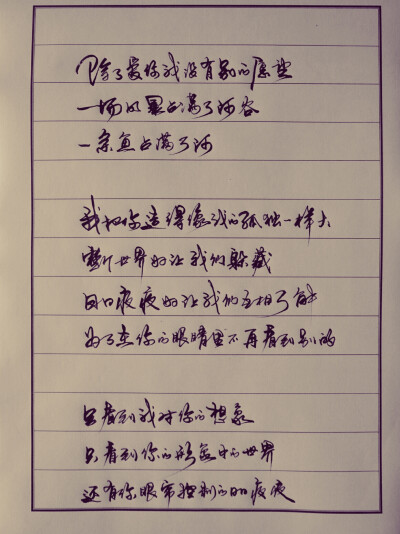 除了爱你我没有别的愿望
一场风暴占满了河谷
一条鱼占满了河
我把你造得像我的孤独一样大
整个世界好让我们躲藏
日日夜夜好让我们互相了解
为了在你的眼睛里不再看到别的
只看到我对你的想象
只看到你的形象中的世界
还有你眼帘控制的日日夜夜